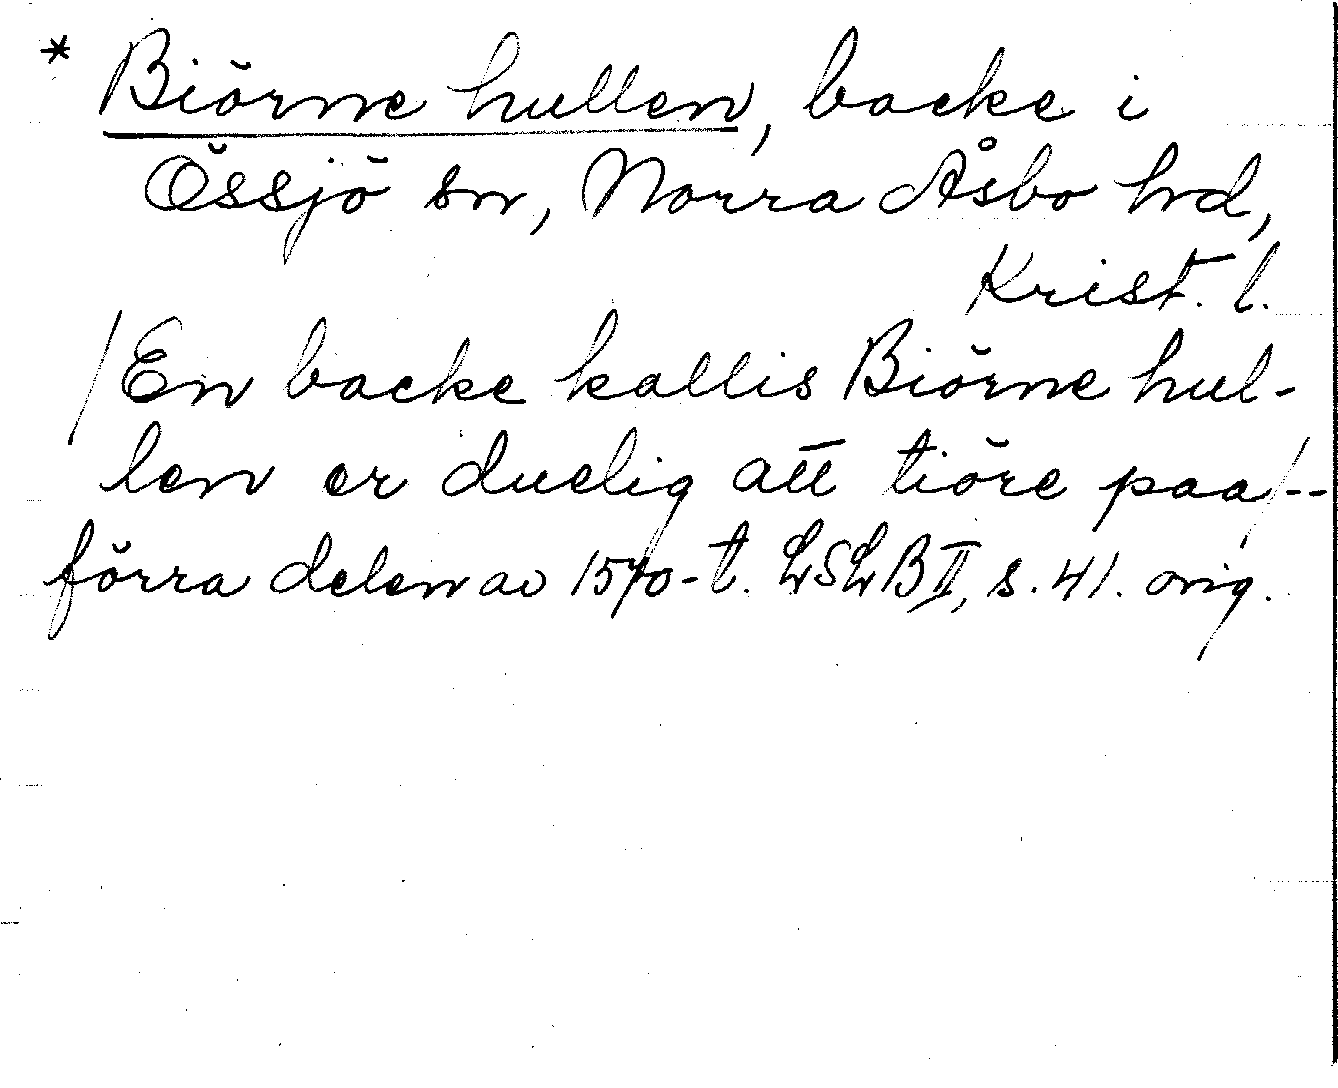 * Biörne hullen, backe i
Össjö sn, Norra Åsbo hd,
Krist. l.
/En backe kallis Biörne hul-
len er duelig att tiöre paa/--
förra delen av 1570-t. LSLB II, s. 41. orig.